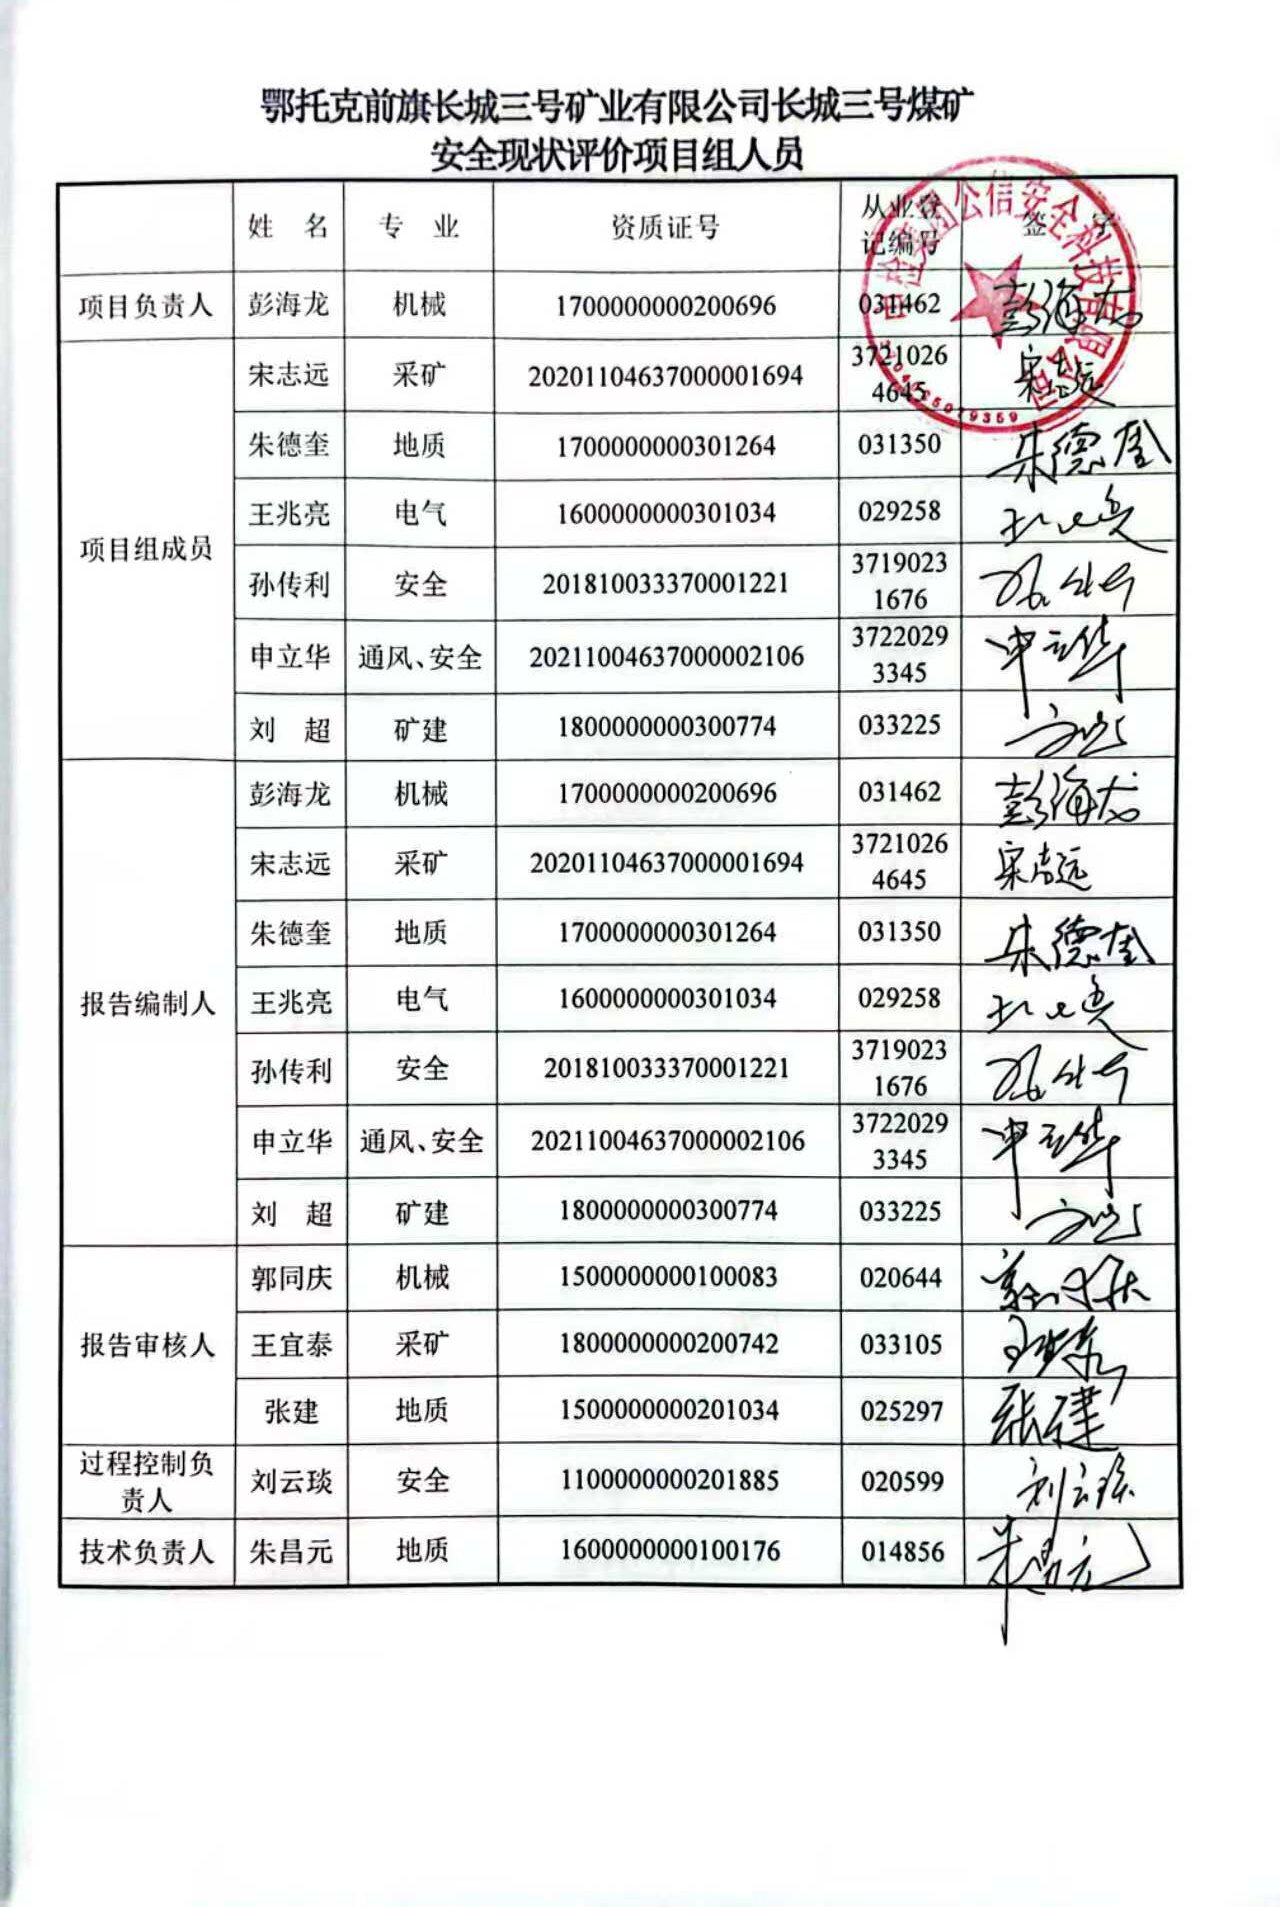 鄂托克前旗长城三号矿业有限公司长城三号煤矿
安全现状评价项目组人员
姓 名 专 业 资质证号 从业登记编号 签 字
项目负责人 彭海龙 机械 1700000000200696 031462 彭海龙
项目组成员 宋志远 采矿 20201104637000001694 37210264645 宋志远
朱德奎 地质 1700000000301264 031350 朱德奎
王兆亮 电气 1600000000301034 029258
孙传利 安全 201810033370001221 37190231676
申立华 通风、安全 20211004637000002106 37220293345 申立华
刘 超 矿建 1800000000300774 033225
报告编制人 彭海龙 机械 1700000000200696 031462 彭海龙
宋志远 采矿 20201104637000001694 37210264645 宋志远
朱德奎 地质 1700000000301264 031350 朱德奎
王兆亮 电气 1600000000301034 029258
孙传利 安全 201810033370001221 37190231676
申立华 通风、安全 20211004637000002106 37220293345 申立华
刘 超 矿建 1800000000300774 033225
报告审核人 郭同庆 机械 1500000000100083 020644 郭同庆
王宜泰 采矿 1800000000200742 033105 王宜泰
张建 地质 1500000000201034 025297 张建
过程控制负责人 刘云琰 安全 1100000000201885 020599 刘云琰
技术负责人 朱昌元 地质 1600000000100176 014856 朱昌元
集团公信安全科技有限公司